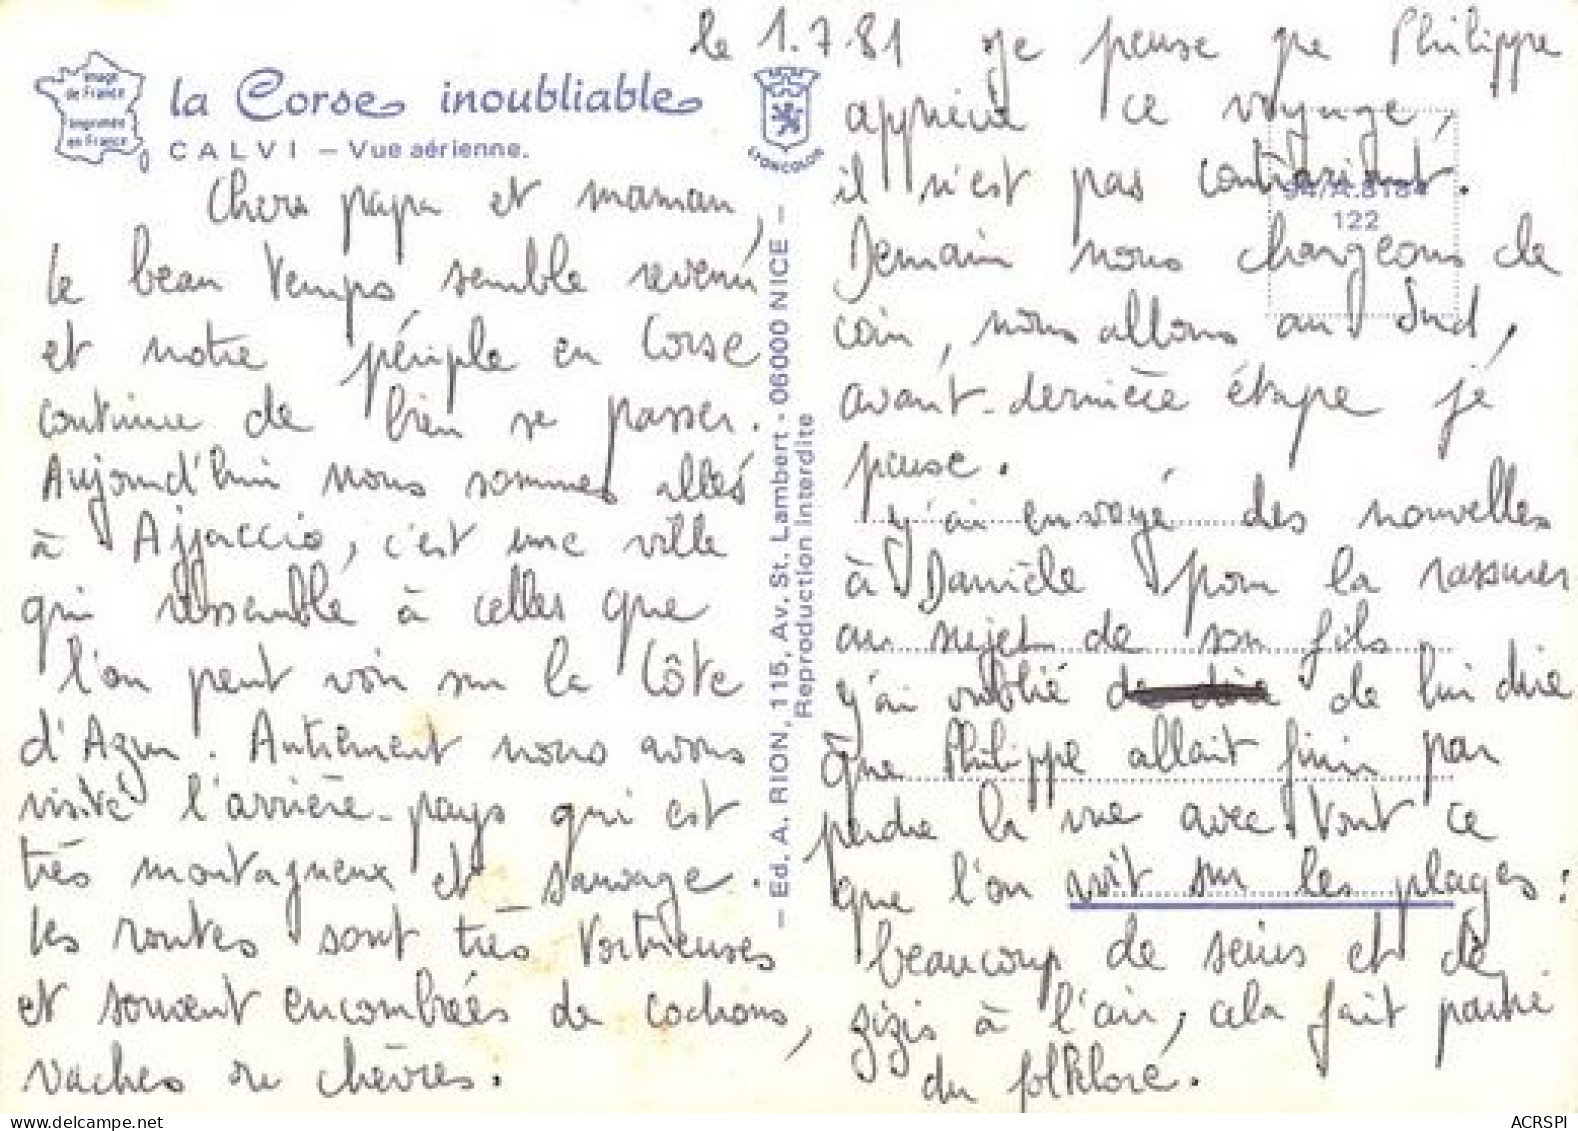 Image
de France
Imprimée
en France
la Corse inoubliable
CALVI – Vue aérienne.
LYONCOLOR
Chers papa et maman,
le beau temps semble revenu
et notre périple en Corse
continue de bien se passer.
Aujourd'hui nous sommes allés
à Ajjaccio, c'est une ville
qui ressemble à celles que
l'on peut voir sur la Côte
d'Azur. Autrement nous avons
visité l'arrière-pays qui est
très montagneux et sauvage.
les routes sont très tortueuses
et souvent encombrées de cochons,
vaches ou chèvres.
— Ed. A. RION, 115, Av. St. Lambert - 06000 NICE —
Reproduction interdite
le 1.7.81 Je pense que Philippe
apprécie ce voyage,
il n'est pas contrariant.
94/A.8184
122
Demain nous changeons de
coin, nous allons au Sud,
avant-dernière étape je
pense.
J'ai envoyé des nouvelles
à Danièle pour la rassurer
au sujet de son fils
J'ai oublié de lui dire
que Philippe allait finir par
perdre la vue avec tout ce
que l'on voit sur les plages :
beaucoup de seins et de
zizis à l'air, cela fait partie
du folklore.
ACRSPI